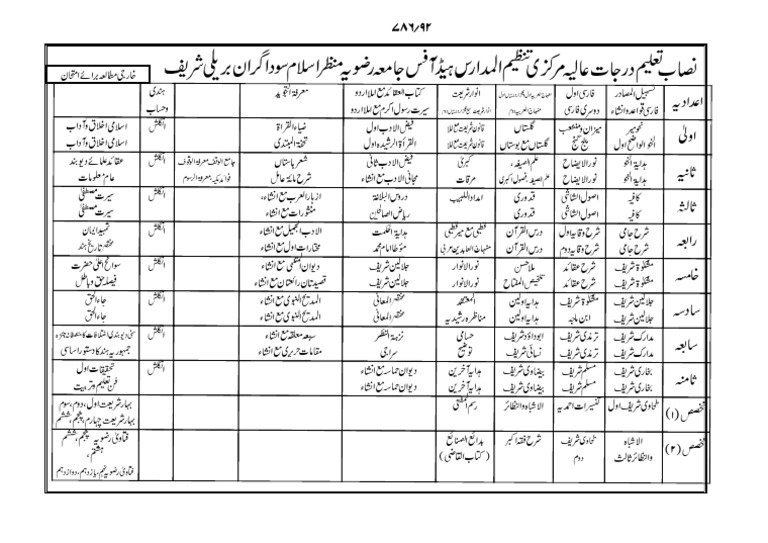 ۷۸۶/۹۲
نصاب تعلیم درجات عالیہ مرکزی تنظیم المدارس ہیڈ آفس جامعہ رضویہ منظر اسلام سوداگران بریلی شریف
خارجی مطالعہ برائے امتحان
اعدادیہ تسہیل المصادر فارسی اول انوار شریعت کتاب العقائد مع املا اردو معرفۃ التجوید ہندی
فارسی قواعد و انشاء دوسری فارسی سیرت رسول اکرم مع املا اردو و حساب
اولیٰ نحو میر میزان و منشعب گلستاں قانون شریعت مع املا فیض الادب اول ضیاء القراۃ انگلش اسلامی اخلاق و آداب
النحو الواضح اول پنج گنج گلستاں مع بوستاں قانون شریعت مع املا القراۃ الرشیدہ اول تحفۃ المبتدی اسلامی اخلاق و آداب
ثانیہ ہدایۃ النحو نور الایضاح علم الصیغہ، کبریٰ فیض الادب ثانی شعر پاستاں جامع الوقف معرفۃ الوقوف انگلش عقائد علمائے دیوبند
ہدایۃ النحو نور الایضاح علم الصیغہ، فصول اکبری مرقات مجانی الادب مع انشاء شرح مائۃ عامل فوائد مکیہ معرفۃ الرسوم عام معلومات
ثالثہ کافیہ اصول الشاشی قدوری امداد اللبیب دروس البلاغۃ ازہار العرب مع انشاء، انگلش سیرت مصطفیٰ
کافیہ اصول الشاشی قدوری ریاض الصالحین منثورات مع انشاء، سیرت مصطفیٰ
رابعہ شرح جامی شرح وقایہ اول درس القرآن قطبی مع میر قطبی ہدایۃ الحکمت الادب الجمیل مع انشاء انگلش تمہید ایمان
شرح جامی شرح وقایہ دوم درس القرآن منہاج العابدین عربی مؤطا امام محمد مختارات اول مع انشاء مختصر تاریخ ہند
خامسہ مشکوٰۃ شریف شرح عقائد ملا حسن نور الانوار جلالین شریف دیوان المتنبی مع انشاء انگلش سوانح اعلیٰ حضرت
مشکوٰۃ شریف شرح عقائد تلخیص المفتاح نور الانوار جلالین شریف قصیدتان رائعتان مع انشاء فیصلہ حق و باطل
سادسہ جلالین شریف مشکوٰۃ شریف ہدایہ اولین المعتقد مختصر المعانی المدیح النبوی مع انشاء انگلش جاء الحق
جلالین شریف ابن ماجہ ہدایہ اولین مناظرہ رشیدیہ مختصر المعانی المدیح النبوی مع انشاء جاء الحق
سابعہ مدارک شریف ترمذی شریف ابو داؤد شریف حسامی نزہۃ النظر سبعہ معلقہ مع انشاء انگلش
مدارک شریف ترمذی شریف نسائی شریف توضیح سراجی مقامات حریری مع انشاء جمہوریہ ہند کا دستور اساسی
ثامنہ بخاری شریف مسلم شریف بیضاوی شریف ہدایہ آخرین دیوان حماسہ مع انشاء انگلش تحقیقات اول
بخاری شریف مسلم شریف بیضاوی شریف ہدایہ آخرین دیوان حماسہ مع انشاء فن تعلیم و تربیت
تخصص (۱) طحاوی شریف اول تفسیرات احمدیہ الاشباہ والنظائر رسم المفتی بہار شریعت اول، دوم، سوم
بہار شریعت چہارم، پنجم، ششم
تخصص (۲) الاشباہ طحاوی شریف شرح فقہ اکبر بدائع الصنائع فتاویٰ رضویہ پنجم، ششم
والنظائر ثالث دوم (کتاب القاضی) ہفتم،
فتاویٰ رضویہ نہم، یازدہم، دوازدہم